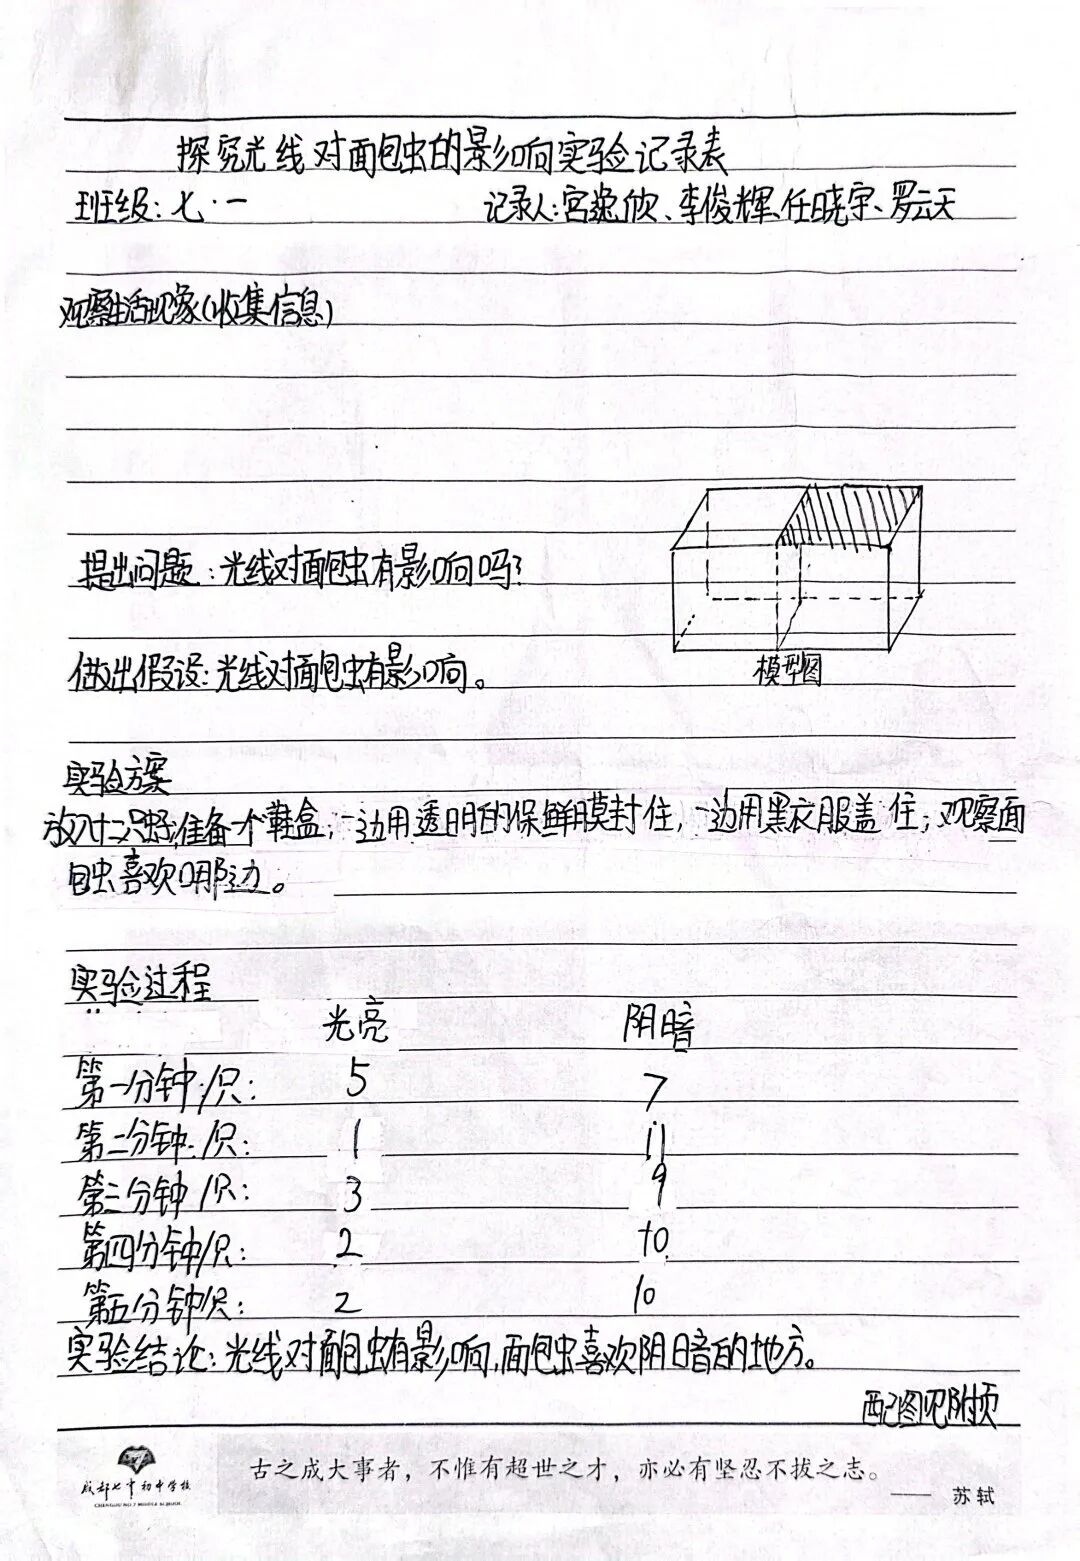 探究光线对面包虫的影响实验记录表
班级：七·一 记录人：宫逸欣、李俊辉、任晓宇、罗云天
观察生活现象（收集信息）
提出问题：光线对面包虫有影响吗？
做出假设：光线对面包虫有影响。
模型图
实验方案
放入十二只虫子，准备一个鞋盒，一边用透明的保鲜膜封住，一边用黑衣服盖住；观察面
包虫喜欢哪边。
实验过程
光亮 阴暗
第一分钟/只： 5 7
第二分钟/只： 1 11
第三分钟/只： 3 9
第四分钟/只： 2 10
第五分钟/只： 2 10
实验结论：光线对面包虫有影响，面包虫喜欢阴暗的地方。
配图见附页
成都七中初中学校
CHENGDU NO.7 MIDDLE SCHOOL
古之成大事者，不惟有超世之才，亦必有坚忍不拔之志。
—— 苏轼